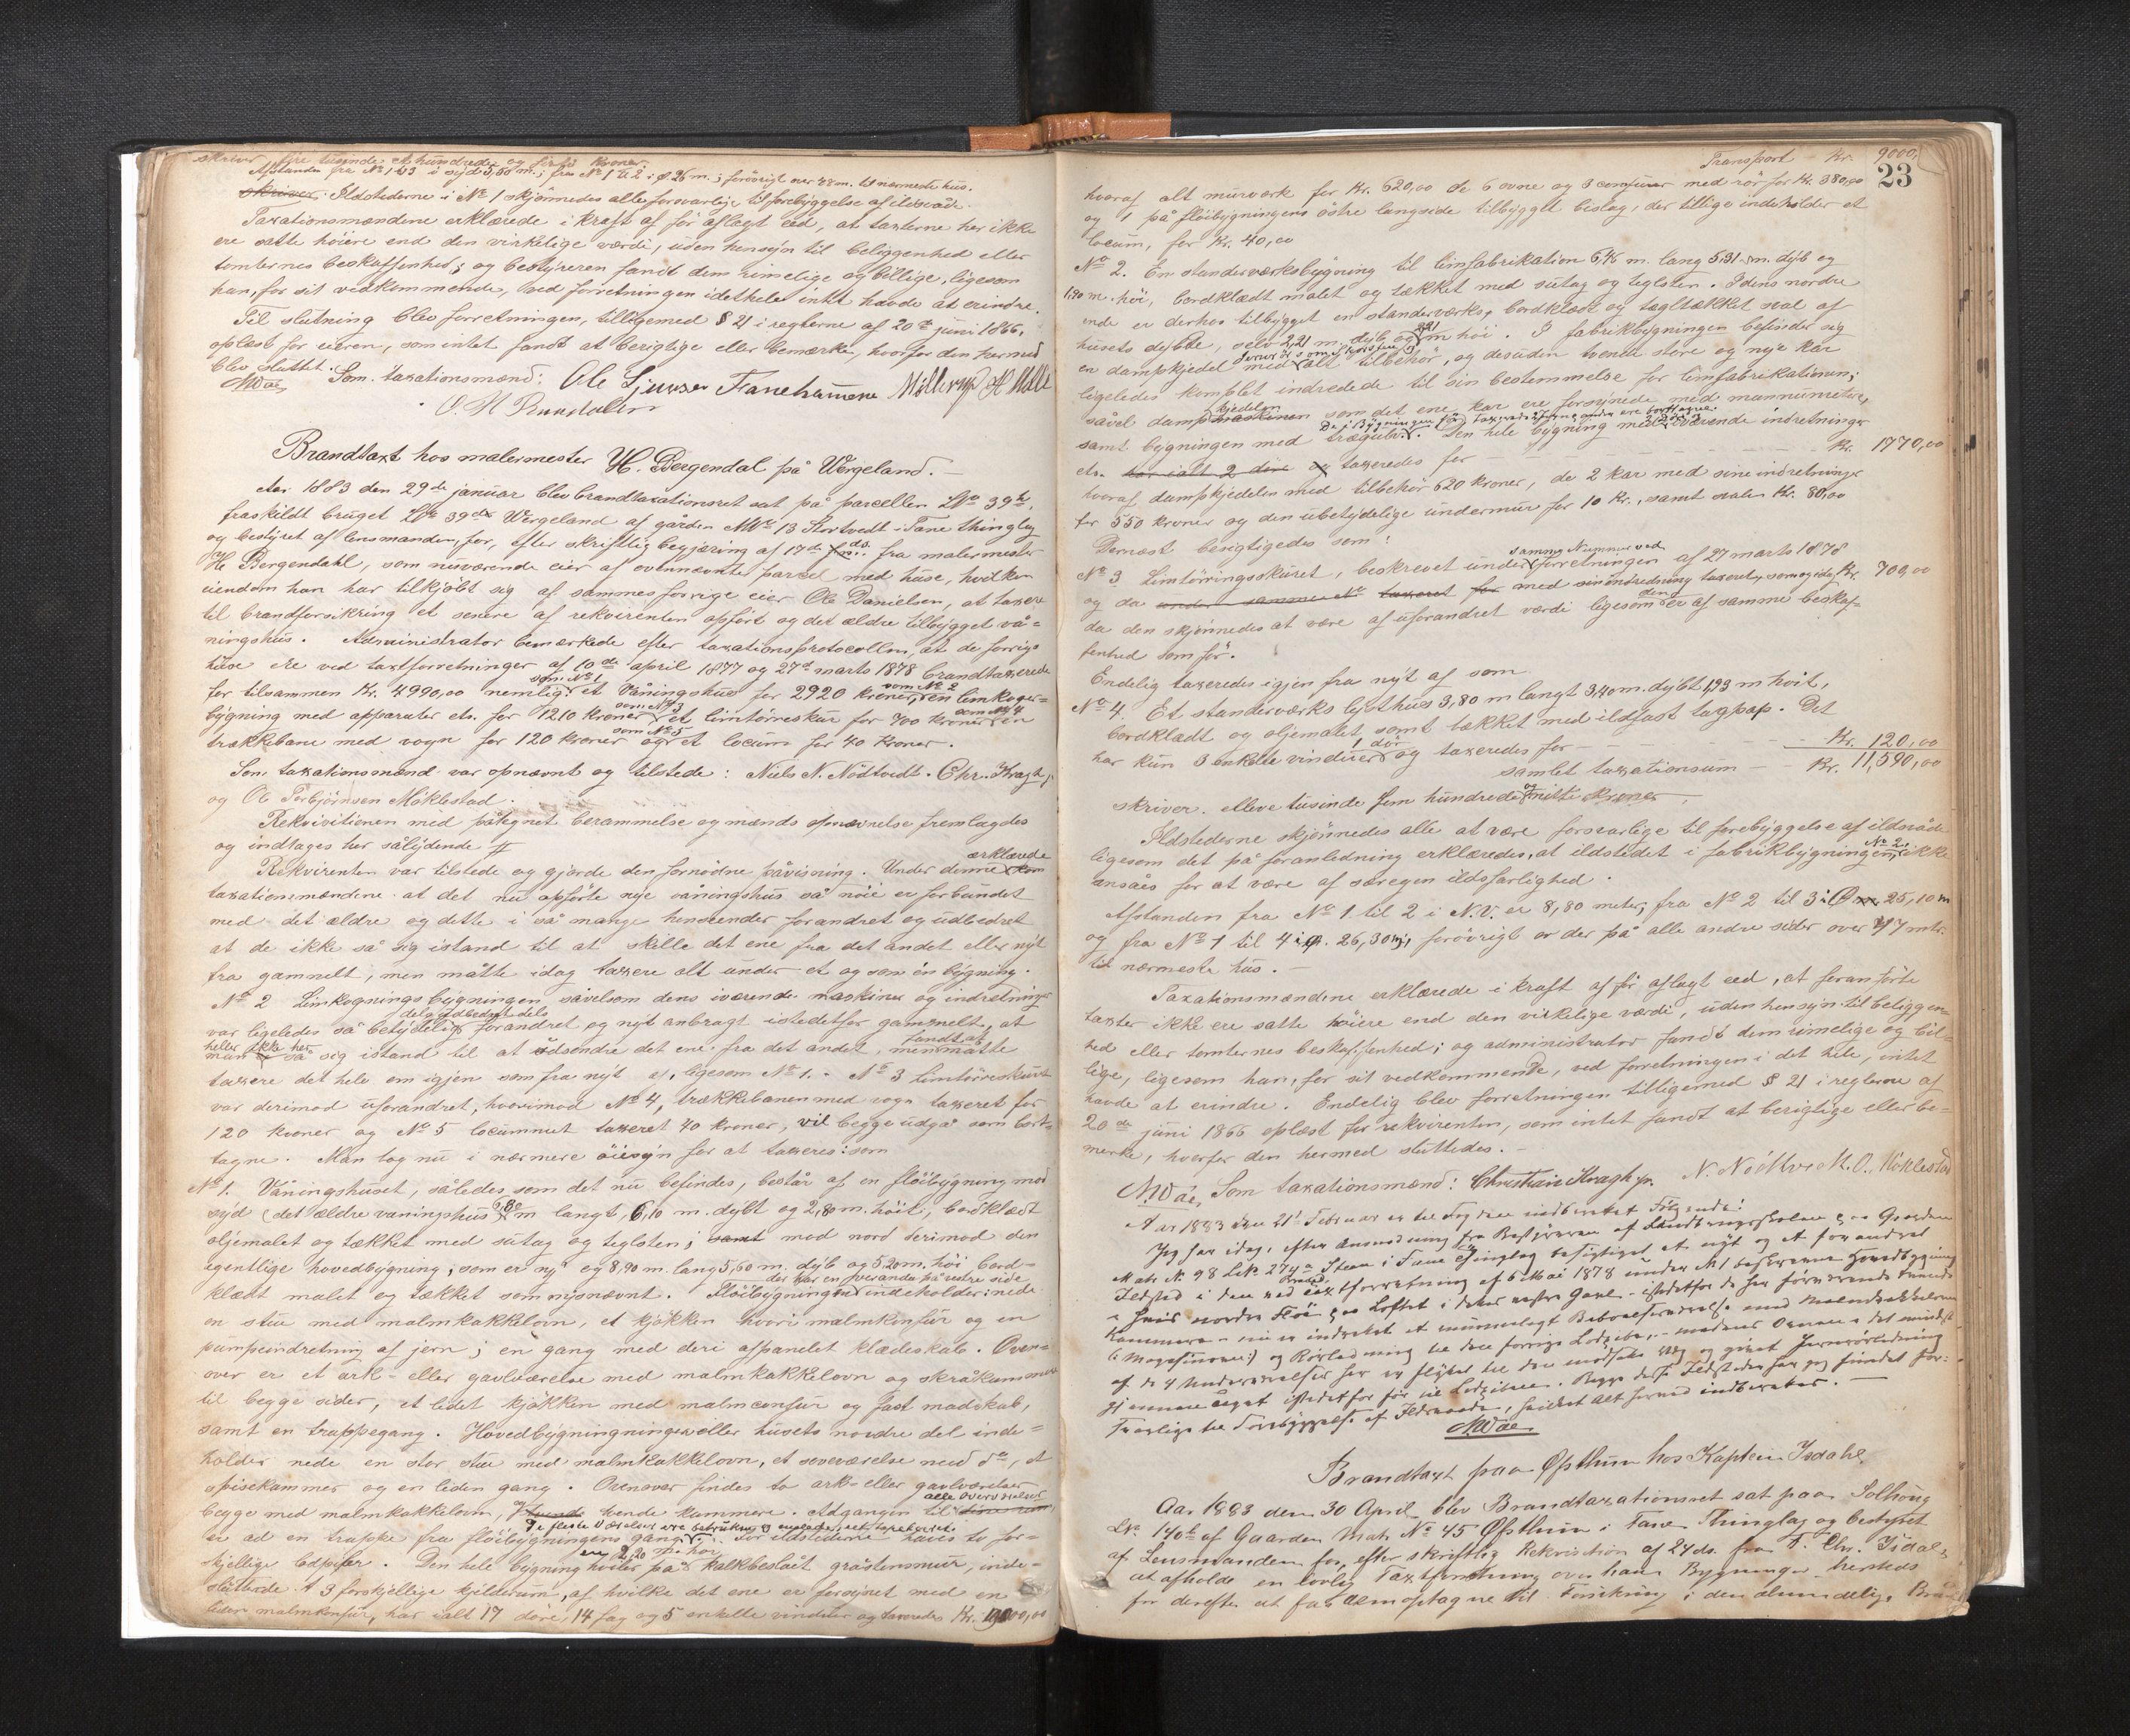 skriver fire tusinde et hundrede og firti kroner.
Afstanden fra No 1 til 3 i syd 5,60 m.; fra No 1 til 2 i ø 26 m.; forövrigt over 48 m. til nærmeste hus.
skriver. Ildstederne i No 1 skjönnedes alle forsvarlige til forebyggelse af ildsvåde.
Taxationsmændene erklærede i kraft af för aflagt eed, at taxterne her ikke
ere satte höiere end den virkelige værdi, uden hensyn til beliggenhed eller
tomternes beskaffenhed; og bestyreren fandt dem rimelige og billige, ligesom
han, for sit vedkommende, ved forretningen idethele intet havde at erindre.
Til slutning blev forretningen, tilligemed § 21 i reglerne af 20de juni 1866,
oplæst for eieren, som intet fandt at berigtige eller bemærke, hvorfor den hermed
blev sluttet.
NWäe Som taxationsmænd: Ole Fanehamene Möllerup
Brandtaxt hos malermester H. Bergendal på Wergeland.
Aar 1883 den 29de januar blev brandtaxationsret sat på parcellen LNo 39
fraskildt bruget LNo 39 Wergeland af gården MNo 13 Stortvedt i Fane thinglag
og bestyret af lensmanden, for, efter skriftlig begjæring af 17de ds. fra malermester
H. Bergendahl, som nuværende eier af ovennævnte parcel med huse, hvilken
eiendom han har tilkjöbt sig af sammes forrige eier Ole Danielsen, at taxere
til brandforsikring et senere af rekvirenten opfört og det ældre tilbygget vå=
ningshus. Administrator bemærkede efter taxationsprotocollen, at de forrige
huse ere ved taxtforretninger af 10de april 1877 og 27de marts 1878 brandtaxerede
for tilsammen Kr. 4990,00 nemlig: som No 1 et Våningshus for 2920 kroner, som No 2 en limkoger=
bygning med apparater etc. for 1210 kroner, som No 3 et limtörreskur for 700 kroner, som No 4 en
trækkebane med vogn for 120 kroner og som No 5 et locum for 40 kroner.
Som taxationsmænd var opnævnt og tilstede: Niels N. Nödtvedt. Chr. Kragh jr
og Ole Torbjörnsen Möklestad.
Rekvisitionen med påtegnet berammelse og mænds opnævnelse fremlagdes
og indtages her sålydende #
Rekvirenten var tilstede og gjorde den fornödne påvisning. Under denne erklærede
taxationsmændene at det nu opförte nye våningshus så nöie er forbundet
med det ældre og dette i så mange henseender forandret og udbedret
at de ikke så sig istand til at skille det ene fra det andet eller nyt
fra gammelt, men måtte idag taxere alt under et og som én bygning.
No 2 Limkogningsbygningen såvelsom dens iværende maskiner og indretninger
var ligeledes så betydelig dels udbedret dels forandret og nyt anbragt istedetfor gammelt, at
man heller ikke her så sig istand til at udsondre det ene fra det andet, men fandt at måtte
taxere det hele om igjen som fra nyt af, ligesom No 1. - No 3 Limtörreskuret
var derimod uforandret, hvorimod No 4, trækkebanen med vogn taxeret for
120 kroner og No 5 locummet taxeret 40 kroner, vil begge udgå som bort=
tagne. Man tog nu i nærmere öiesyn for at taxeres: som
No 1. Våningshuset, således som det nu befindes, består af en flöibygning mod
syd (det ældre vaningshus) m langt, 6,10 m. dybt og 2,80 m. höit, bordklædt
oljemalet og tækket med sutag og teglsten; samt mod nord derimod den
egentlige hovedbygning, som er ny og 8,90 m. lang 5,60 m. dyb og 5,20 m. höi bord=
klædt malet og tækket som nysnævnt. Flöibygningen der har en veranda på östre side indeholder: nede
en stue med malmkakkelovn, et kjökken hvori malmkonfur og en
pumpeindretning af jern; en gang med deri afpanelet klædeskab. Oven=
over er et ark- eller gavlværelse med malmkakkelovn og skråkammere
til begge sider, et lidet kjökken med malmconfur og fast madskab,
samt en trappegang. Hovedbygningningen eller husets nordre del inde=
holder nede en stor stue med malmkakkelovn, et soveværelse med do, et
spisekammer og en liden gang. Ovenover findes to ark- eller gavlværelser
begge med malmkakkelovn, tvende kammere. Adgangen til alle overværelser
er ad en trappe fra flöibygningens gang. De fleste Værelser ere betrukne og malede, et tapetseret. For ildstederne haves to for=
skjellige Lodpiber. Den hele bygning hviler på en 2,20 m. höi kalkbeslået gråstensmur, inde=
sluttende 3 forskjellige kjelderrum, af hvilke det ene er forsynet med en
liden malmkonfur, har ialt 17 döre, 14 fag og 5 enkelte vinduer og taxeredes Kr. 9000,00
Transport - Kr. 9000,
23
hvoraf alt murværk for Kr. 620,00 de 6 ovne og 3 confurer med rör for Kr. 380,00
og 1 på flöibygningens östre langside tilbygget bislag, der tillige indeholder et
locum, for Kr. 40,00
No 2. En standerværksbygning til limfabrikation 6,46 m. lang 5,31 m. dyb og
1,90 m. höi, bordklædt malet og tækket med sutag og teglsten. I dens nordre
ende er derhos tilbygget en standerværks, bordklædt og tegltækket sval af
husets dybde, selv 2,21 m. dyb og 2,21 m höi. I fabrikbygningen befinder sig
en dampkjedel med alt tilbehör, og desuden tvende store og nye kar
ligeledes komplet indredede til sin bestemmelse for limfabrikationen;
såvel dampkjedelen som det ene kar ere forsynede med mannumeter,
samt bygningen med trægulv. Den hele bygning med iværende indretninger
etc. har ialt 2 döre og taxeredes for - - - - - Kr. 1770,00
hvoraf dampkjedelen med tilbehör 620 kroner, de 2 kar med sine indretninger
for 550 kroner og den ubetydelige undermur for 10 Kr., samt svalen Kr. 80,00
Dernæst besigtigedes som:
No 3 Limtörringsskuret, beskrevet under samme Nummer ved forretningen af 27 marts 1878
og da under samme No taxeret for med sin indredning taxeret, som og idag Kr. 700,00
da den skjönnedes at være af uforandret værdi ligesom den er af samme beskaf=
fenhed som för.
Endelig taxeredes igjen fra nyt af som
No 4. Et standerværks lysthus 3,80 m langt 3,40 m. dybt 1,93 m höit,
bordklædt og oljemalet samt tækket med ildfast tagpap. Det
har kun 3 enkelte vinduer 1 dör og taxeredes for - - - - Kr. 120,00
samlet taxationsum - - Kr. 11,590,00
skriver. elleve tusinde fem hundrede og nitti Kroner.
Ildstederne skjönnedes alle at være forsvarlige til forebyggelse af ildsvåde
ligesom det på foranledning erklæredes, at ildstedet i fabrikbygningen No 2, ikke
ansåes for at være af særegen ildsfarlighed.
Afstanden fra No 1 til 2 i N.V. er 8,80 meter, fra No 2 til 3 i Ø 25,10 m
og fra No 1 til 4 i ø. 26,30 m; forövrigt er der på alle andre sider over 47 mtr.
til nærmeste hus. -
Taxationsmændene erklærede i kraft af för aflagt eed, at foranförte
taxter ikke ere satte höiere end den virkelige værdi, uden hensyn til beliggen=
hed eller tomternes beskaffenhed; og administrator fandt dem rimelige og bil=
lige, ligesom han, for sit vedkommende, ved forretningen i det hele, intet
havde at erindre. Endelig blev forretningen tilligemed § 21 i reglerne af
20de juni 1866 oplæst for rekvirenten, som intet fandt at berigtige eller be=
mærke, hvorfor den hermed sluttedes. -
NWäe, Som taxationsmænd: Christian Kragh jr. N. Nödtvedt. O. Möklestad
Aar 1883 den 21de Februar er til Bogen indberettet Fölgende:
Jeg har idag, efter Anmodning fra Bestyreren af Landbrugsskolen paa Gaarden
Matr. No 98 LNo 274a Steen i Fane Thinglag besigtiget et nyt og et forandret
Ildsted i den ved Brandtaxtforretning af 6 Mai 1878 under No 1 beskrevne Hovedbygning
i hvis nordre Flöi paa Loftet i dens Gavl - istedetfor de her förværende tvende
Kammere - nu er indrettet et rummeligt Beboelsesværelse med Malmkakkelovn
(: Magasinovn :) og Rörledning til den forrige Lodpibe, - medens Ovnen i det mindste
af de 4 Underværelser her er flyttet til den modsatte Væg og givet Jernrörledning
gjennem Taget istedetfor för til Lodpiben. Begge disse Ildsteder har jeg fundet for=
svarlige til Forebyggelse af Ildsvaade, hvilket Alt hermed indberettes. -
NWäe
Brandtaxt paa Øfsthun hos Kaptein Isdahl.
Aar 1883 den 30 April blev Brandtaxationsret sat paa Solhoug
LNo 140b af Gaarden Matr. No 45 Øfsthun i Fane Thinglag og bestyret
af Lensmanden for, efter skriftlig Rekvisition af 24 ds. fra T. Chr. Isdahl,
at afholde en lovlig Taxtforretning over hans Bygninger hersteds
for derefter at faa dem optagne til Forsikring i den almindelige Brand